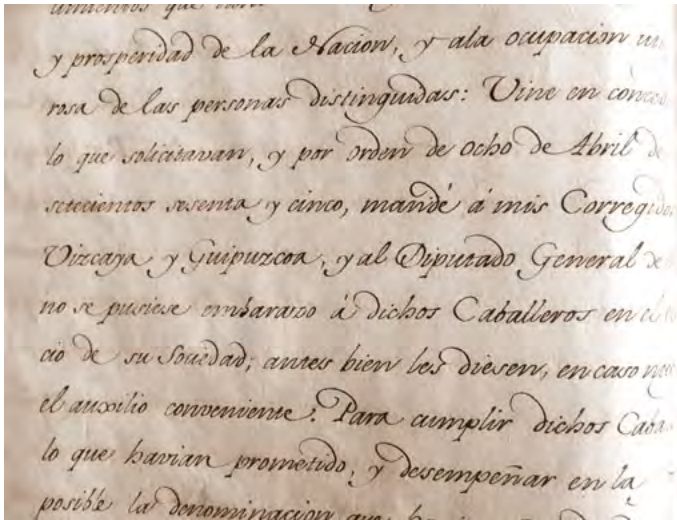 y prosperidad de la Nacion, y ala ocupacion
rosa de las personas distinguidas: Vine en conced
lo que solicitavan, y por orden de ocho de Abril de
setecientos sesenta y cinco, mandé á mis Corregidor
Vizcaya y Guipuzcoa, y al Diputado General de
no se pusiese embarazo á dichos Caballeros en el
cio de su Sociedad; antes bien les diesen, en caso
el auxilio conveniente. Para cumplir dichos Caba
lo que havian prometido, y desempeñar en la
posible la denominacion que